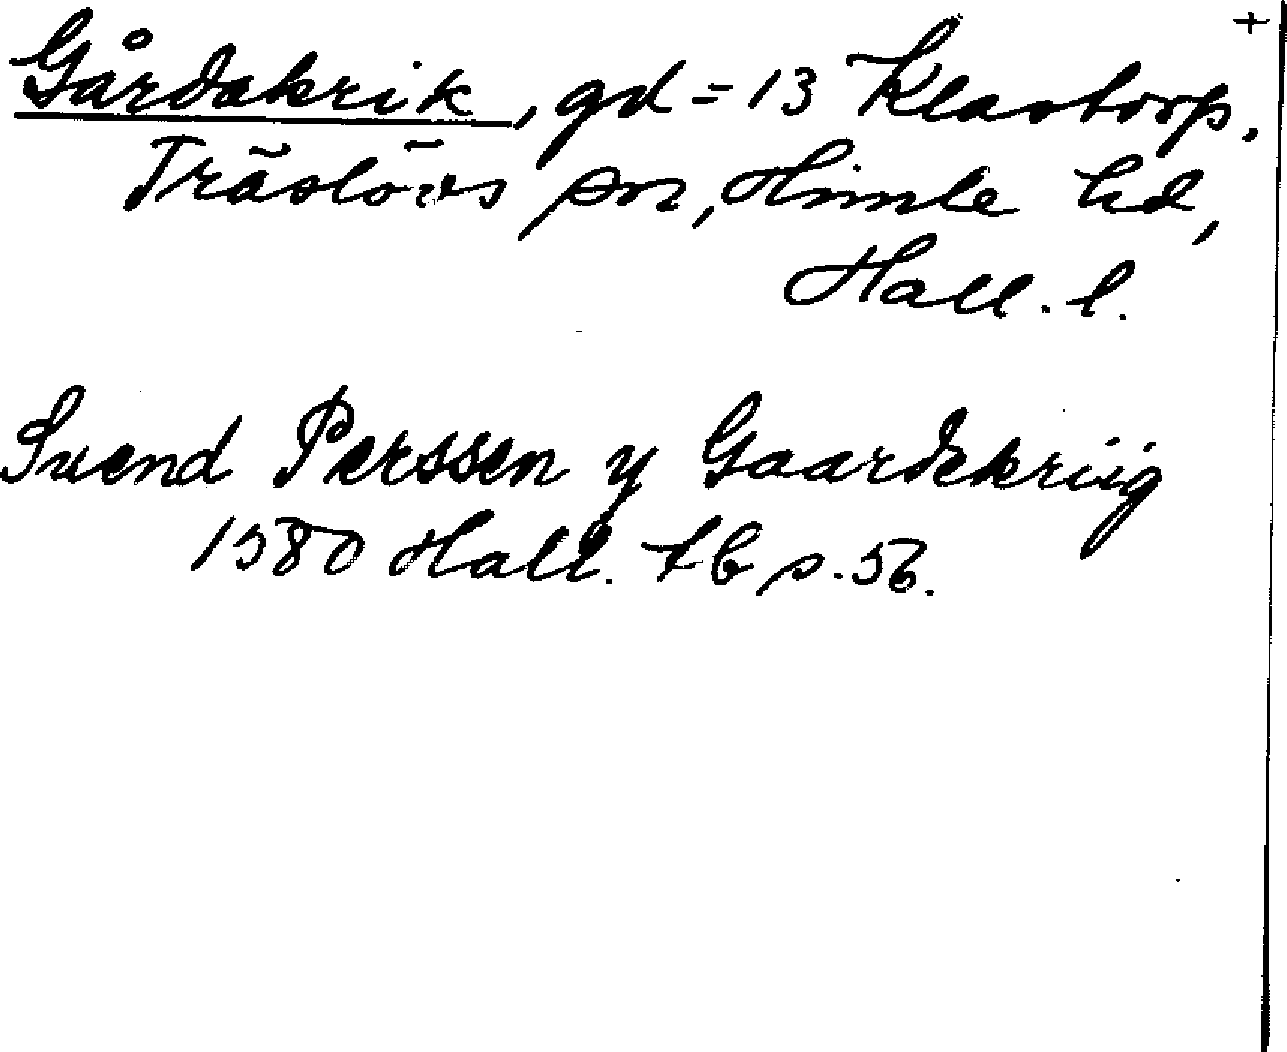 +
Gårdakrik, gd = 13 Klastorp,
Träslövs sn, Himle hd,
Hall. l.
Suend Perssen y Gaardekriig
1580 Hall. tb s. 56.